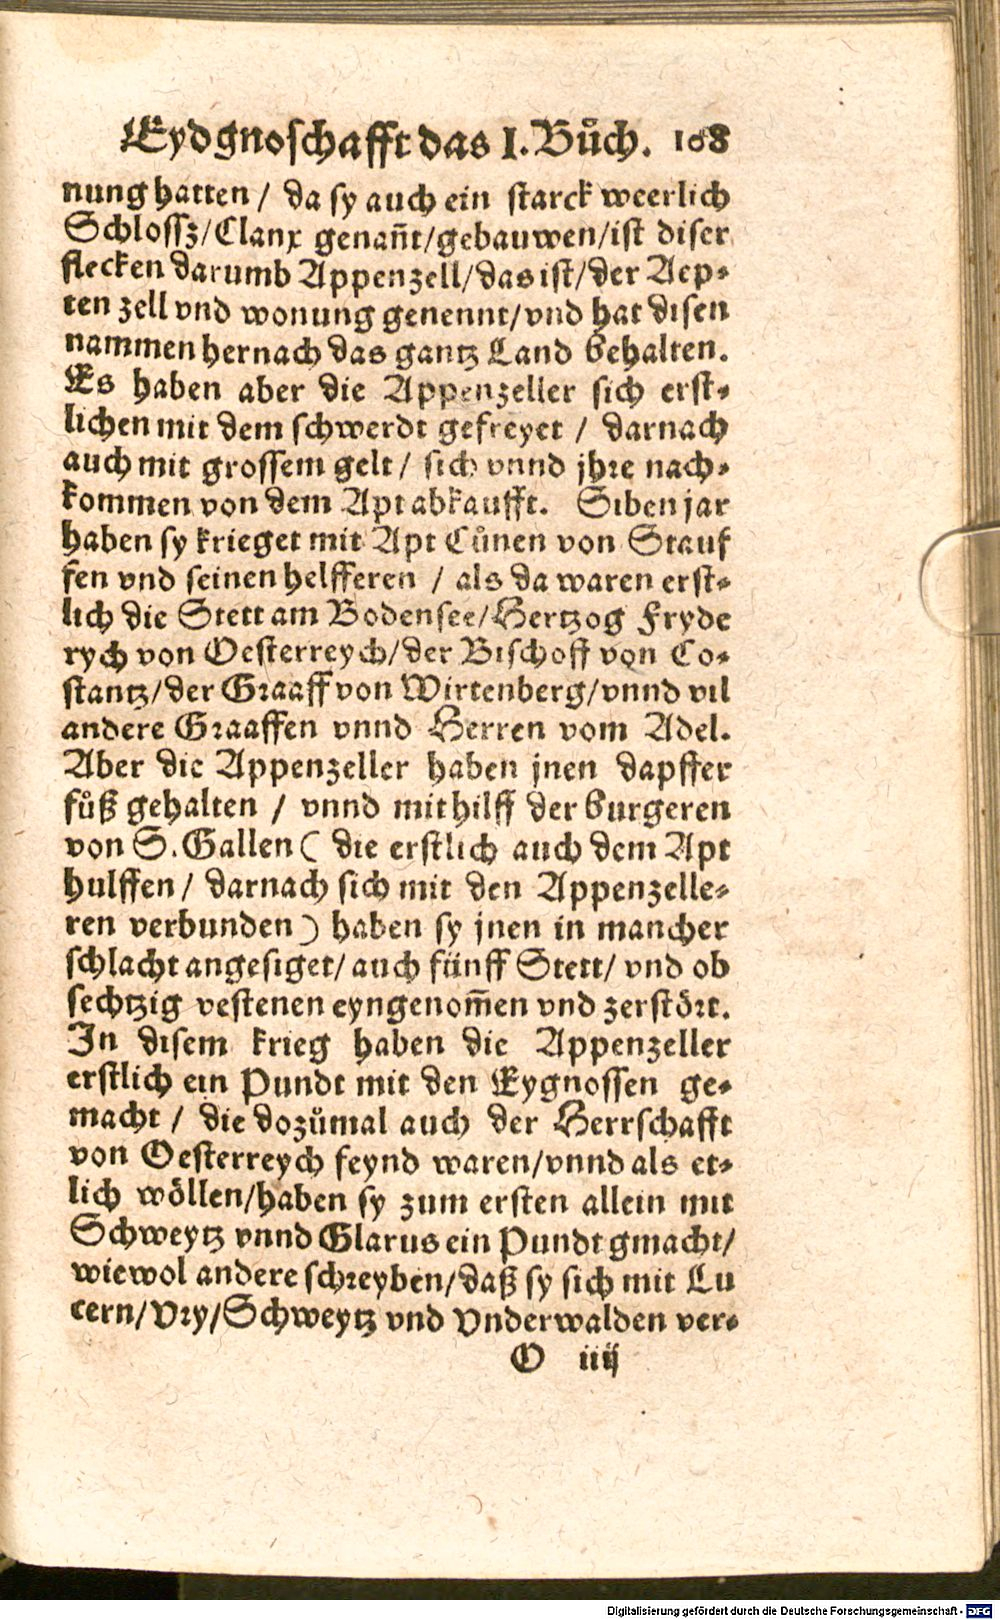 Eydgnoschafft das I. Bůch. 108
nung hatten / da sy auch ein starck weerlich
Schlossz/Clanx genañt/gebauwen/ist diser
flecken darumb Appenzell/das ist/der Aep-
ten zell vnd wonung genennt/vnd hat disen
nammen hernach das gantz Land behalten.
Es haben aber die Appenzeller sich erst-
lichen mit dem schwerdt gefreyet / darnach
auch mit grossem gelt / sich vnnd jhre nach-
kommen von dem Apt abkaufft. Siben jar
haben sy krieget mit Apt Cůnen von Stauf
fen vnd seinen helfferen / als da waren erst-
lich die Stett am Bodensee/Hertzog Fryde
rych von Oesterreych/der Bischoff von Co-
stantz/der Graaff von Wirtenberg/vnnd vil
andere Graaffen vnnd Herren vom Adel.
Aber die Appenzeller haben jnen dapffer
fůß gehalten / vnnd mit hilff der burgeren
von S. Gallen ( die erstlich auch dem Apt
hulffen / darnach sich mit den Appenzelle-
ren verbunden ) haben sy jnen in mancher
schlacht angesiget/ auch fünff Stett/ vnd ob
sechtzig vestenen eyngenom̃en vnd zerstört.
In disem krieg haben die Appenzeller
erstlich ein Pundt mit den Eygnossen ge-
macht / die dozůmal auch der Herrschafft
von Oesterreych feynd waren/vnnd als et-
lich wöllen/haben sy zum ersten allein mit
Schweytz vnnd Glarus ein Pundt gmacht/
wiewol andere schreyben/daß sy sich mit Lu
cern/Vry/Schweytz vnd Vnderwalden ver-
O iiij
Digitalisierung gefördert durch die Deutsche Forschungsgemeinschaft - DFG